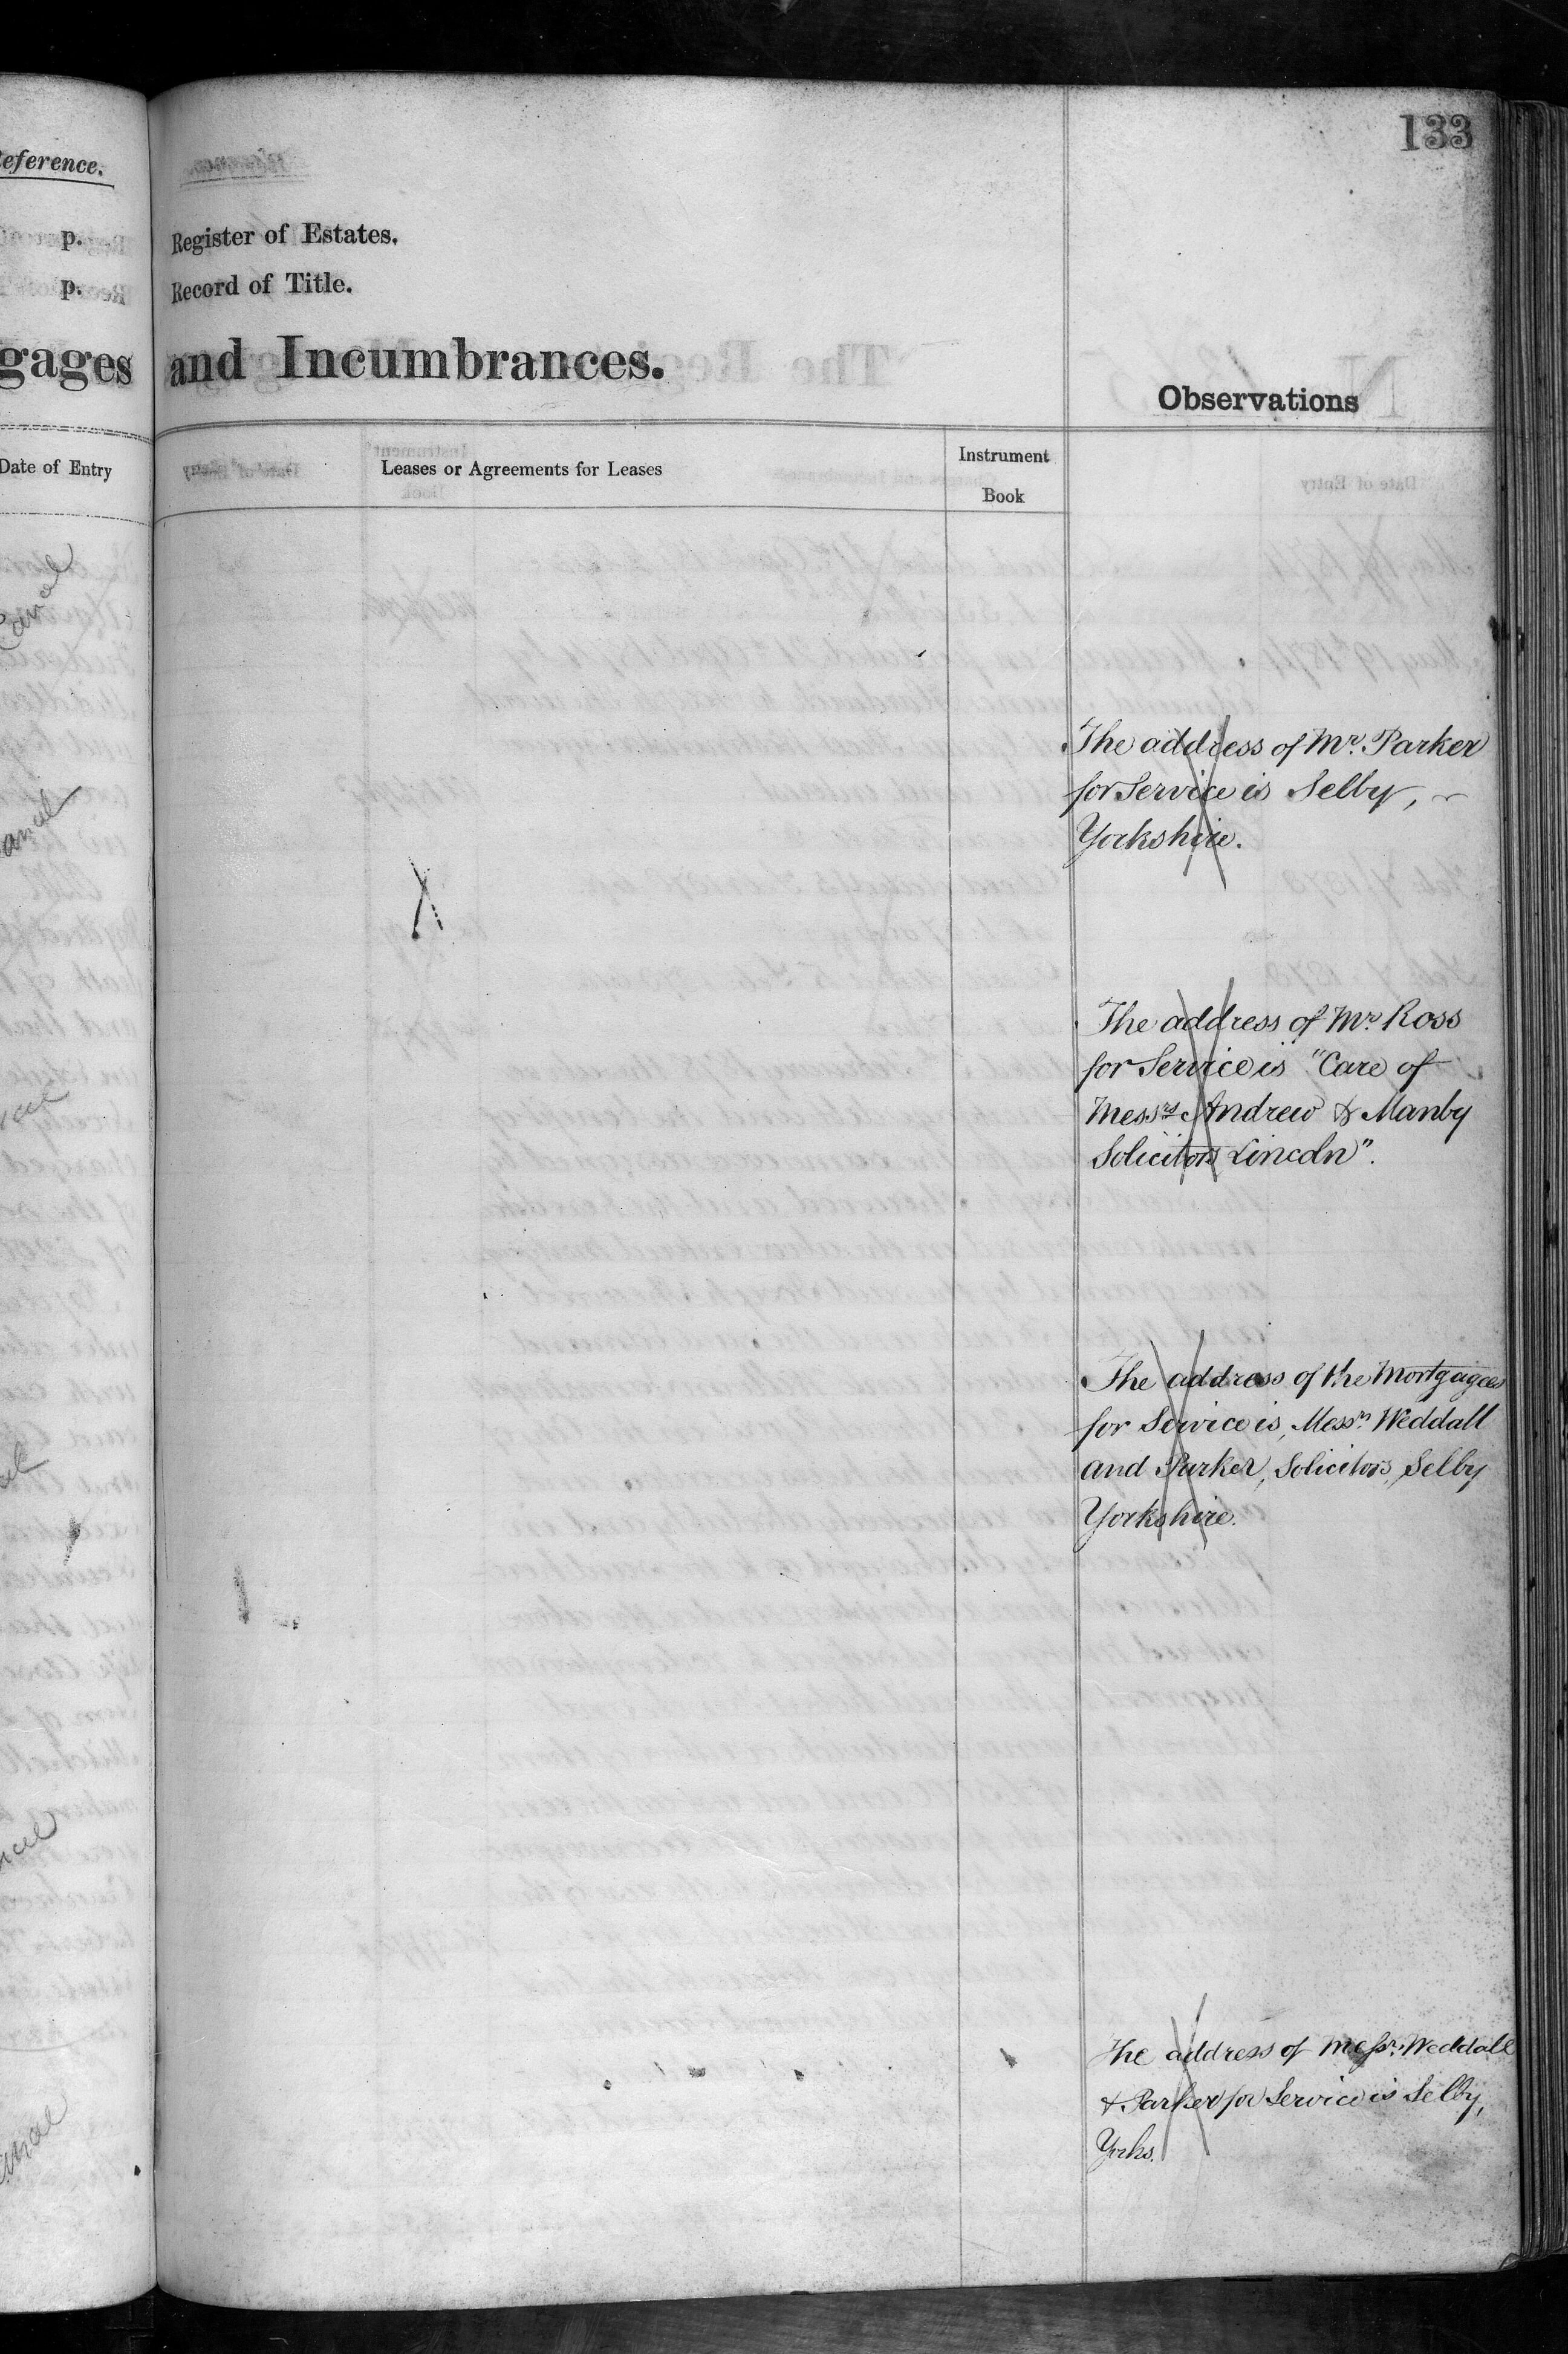 133
eference.
p.
p.
gages
Date of Entry
Register of Estates.
Record of Title.
and Incumbrances.
Observations
Leases or Agreements for Leases
Instrument
Book
The address of Mr. Parker
for Service is Selby,
Yorkshire.
The address of Mr Ross
for Service is "Care of
Messrs Andrew & Manby
Solicitors Lincoln".
The address of the Mortgagees
for Service is, Messrs Weddall
and Parker, Solicitors, Selby
Yorkshire.
The address of Messrs Weddall
& Parker for Service is Selby,
Yorks.